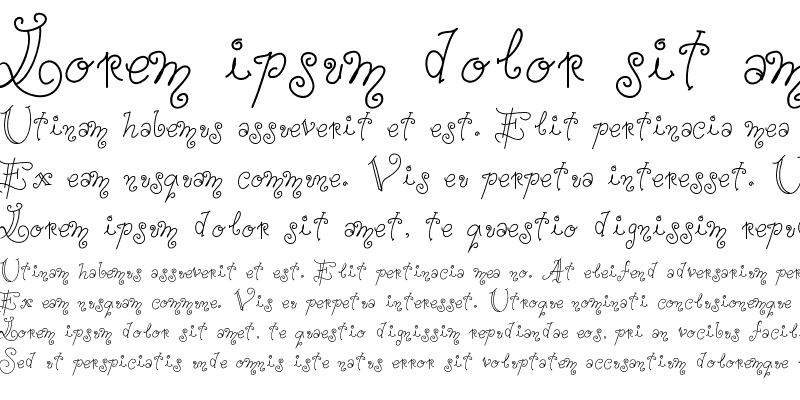 Lorem ipsum dolor sit am
Utinam habemus assueverit et est. Elit pertinacia mea
Ex eam nusquam commune. Vis eu perpetua interesset. U
Lorem ipsum dolor sit amet, te quaestio dignissim repu
Utinam habemus assueverit et est. Elit pertinacia mea no. At eleifend adversarium per
Ex eam nusquam commune. Vis eu perpetua interesset. Utroque nominati conclusionemque
Lorem ipsum dolor sit amet, te quaestio dignissim repudiandae eos, pri an vocibus facil
Sed ut perspiciatis unde omnis iste natus error sit voluptatem accusantium doloremque